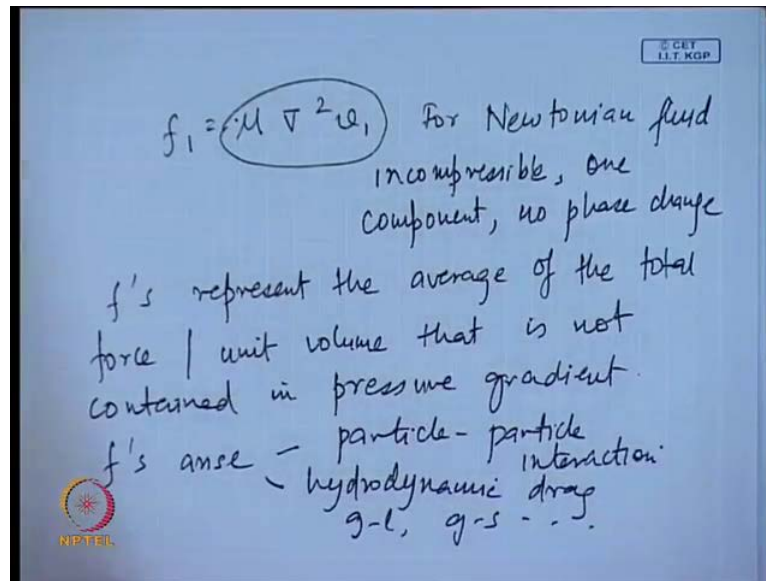 © CET
I.I.T. KGP
f₁ = μ ∇² v₁ For Newtonian fluid
incompressible, one
component, no phase change
f's represent the average of the total
force / unit volume that is not
contained in pressure gradient.
f's arise - particle - particle
interaction
- hydrodynamic drag
g-l, g-s - - .
NPTEL